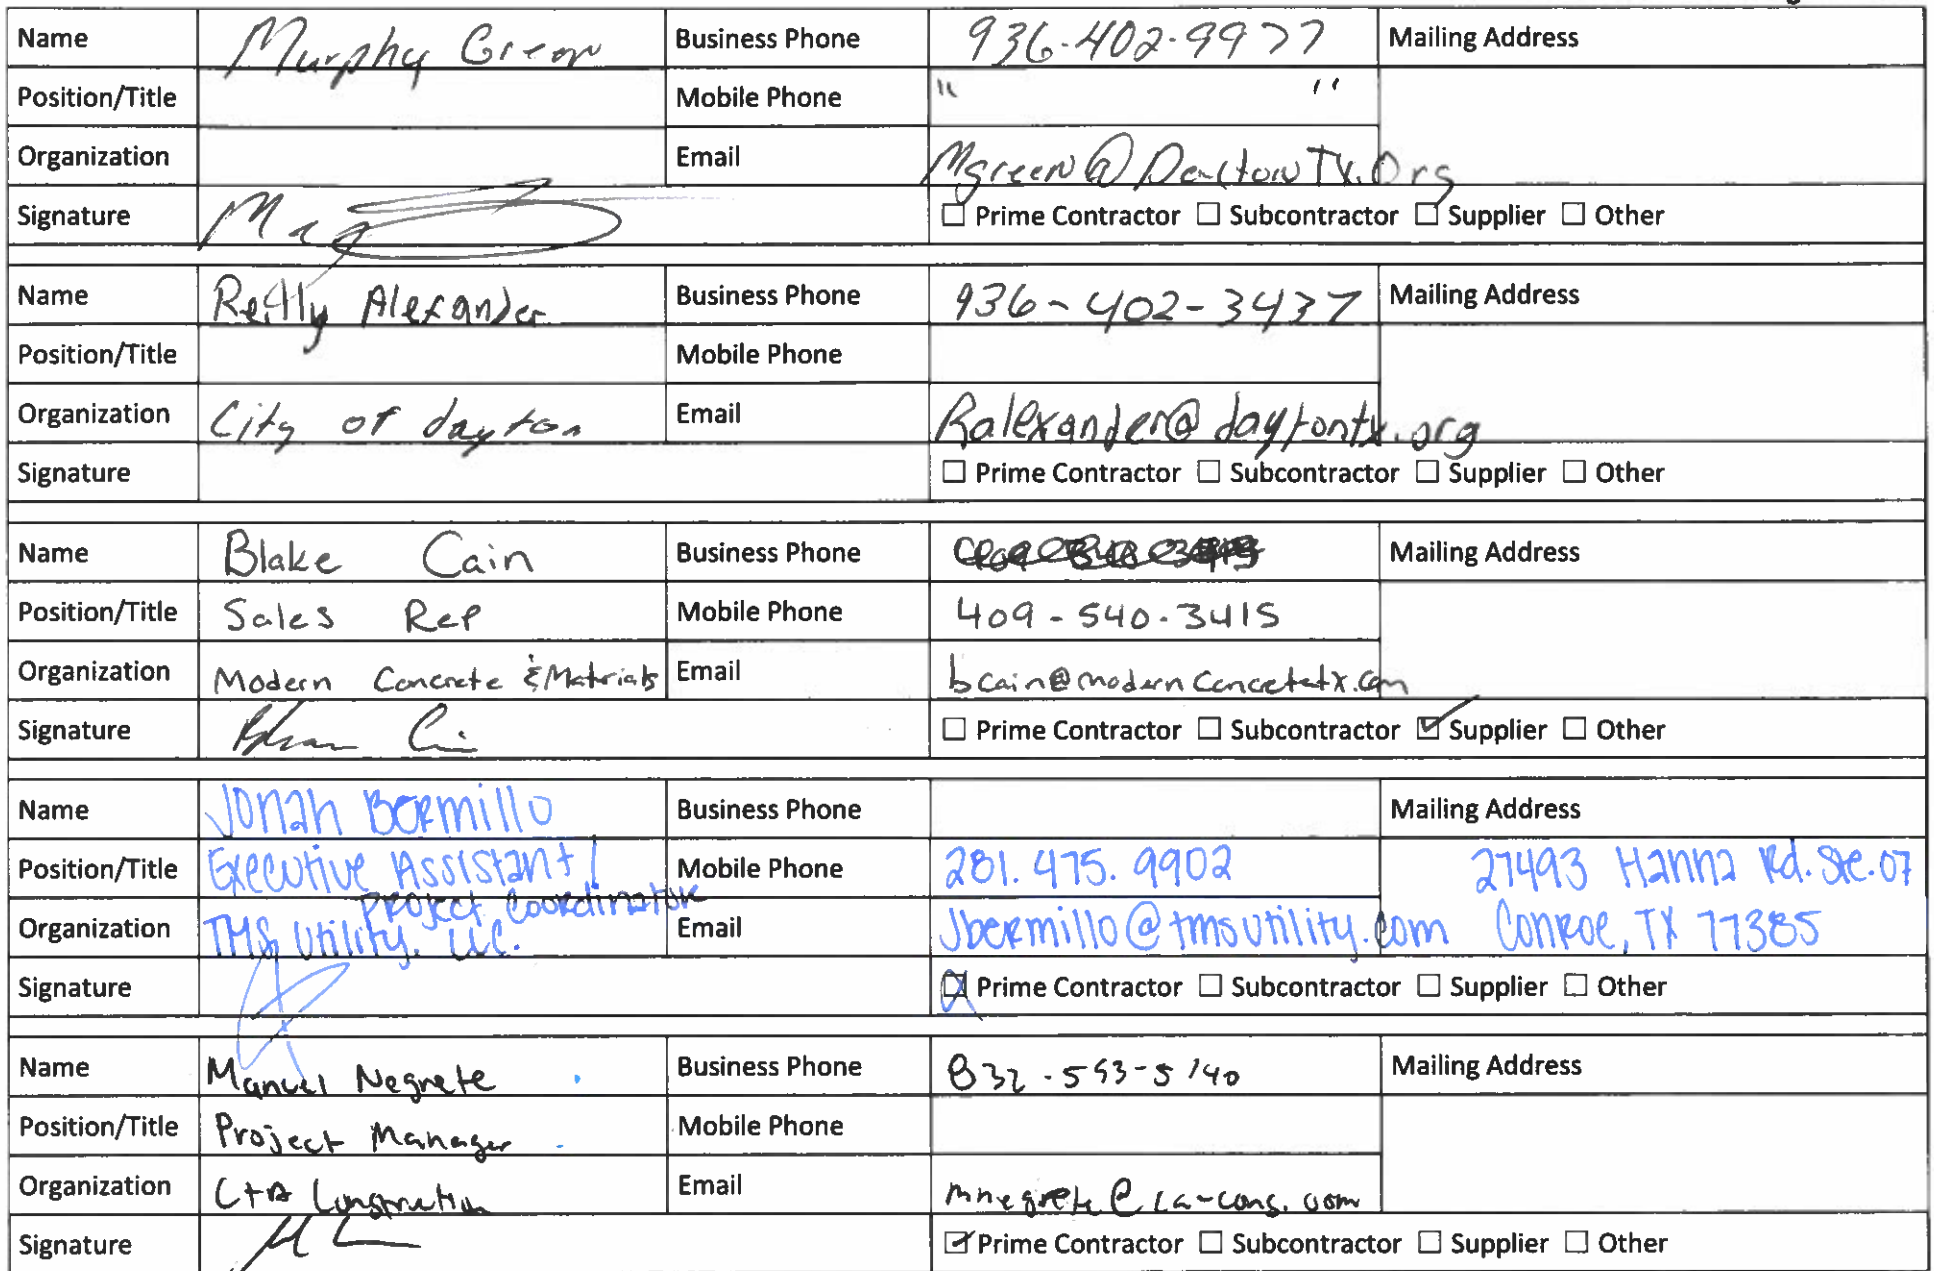 Name Murphy Green Business Phone 936-402-9977 Mailing Address
Position/Title Mobile Phone " "
Organization Email Mgreen@DaytonTX.Org
Signature ☐ Prime Contractor ☐ Subcontractor ☐ Supplier ☐ Other
Name Reilly Alexander Business Phone 936-402-3437 Mailing Address
Position/Title Mobile Phone
Organization City of dayton Email Ralexander@daytontx.org
Signature ☐ Prime Contractor ☐ Subcontractor ☐ Supplier ☐ Other
Name Blake Cain Business Phone Mailing Address
Position/Title Sales Rep Mobile Phone 409-540-3415
Organization Modern Concrete & Materials Email bcain@modernconcretetx.com
Signature ☐ Prime Contractor ☐ Subcontractor ☑ Supplier ☐ Other
Name Jonah Bermillo Business Phone Mailing Address
Position/Title Executive Assistant / Mobile Phone 281.475.9902 27493 Hanna Rd. Ste.07
Project Coordinator
Organization TMS Utility, LLC. Email Jbermillo@tmsutility.com Conroe, TX 77385
Signature ☑ Prime Contractor ☐ Subcontractor ☐ Supplier ☐ Other
Name Manuel Negrete Business Phone 832-593-5140 Mailing Address
Position/Title Project Manager Mobile Phone
Organization C+A Construction Email mnegrete@ca-cons.com
Signature ☑ Prime Contractor ☐ Subcontractor ☐ Supplier ☐ Other